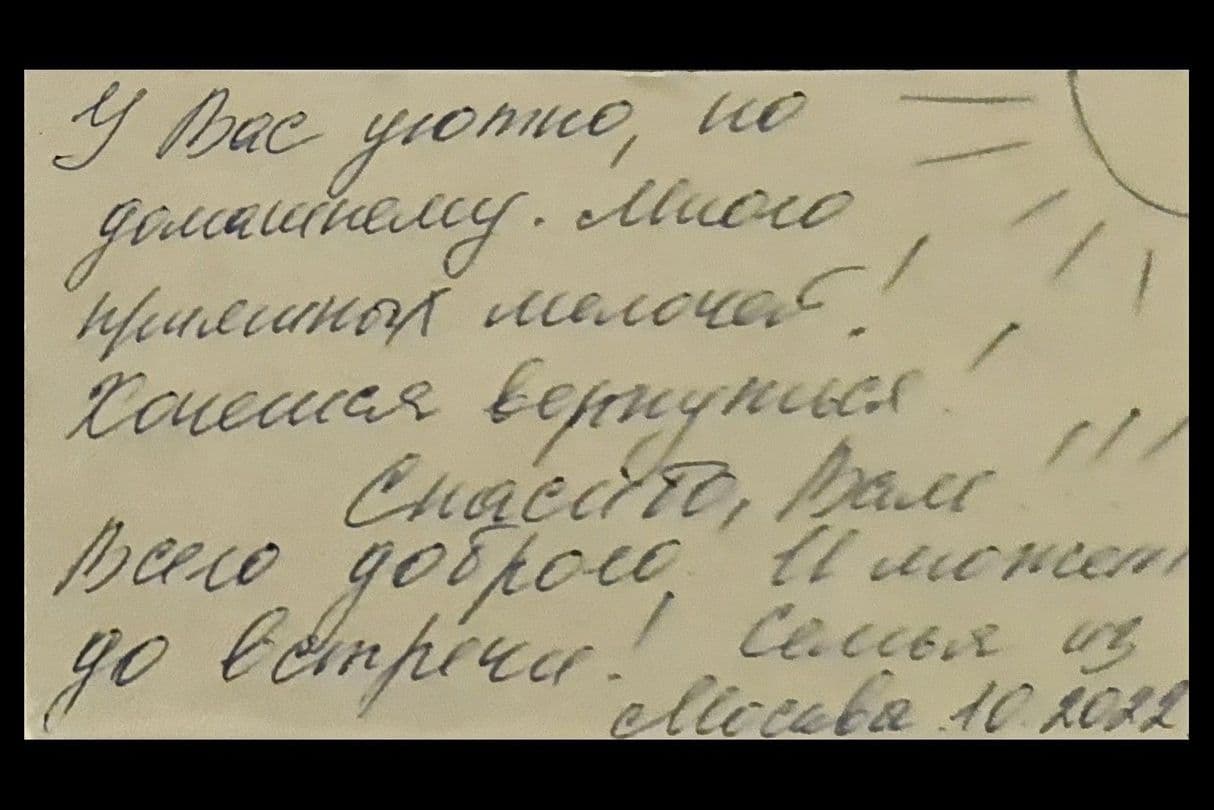 У Вас уютно, по
домашнему. Много
приятных мелочей!
Хочется вернуться!
Спасибо, Вам!!!
Всего доброго. И может
до встречи! Семья из
Москва. 10.2022